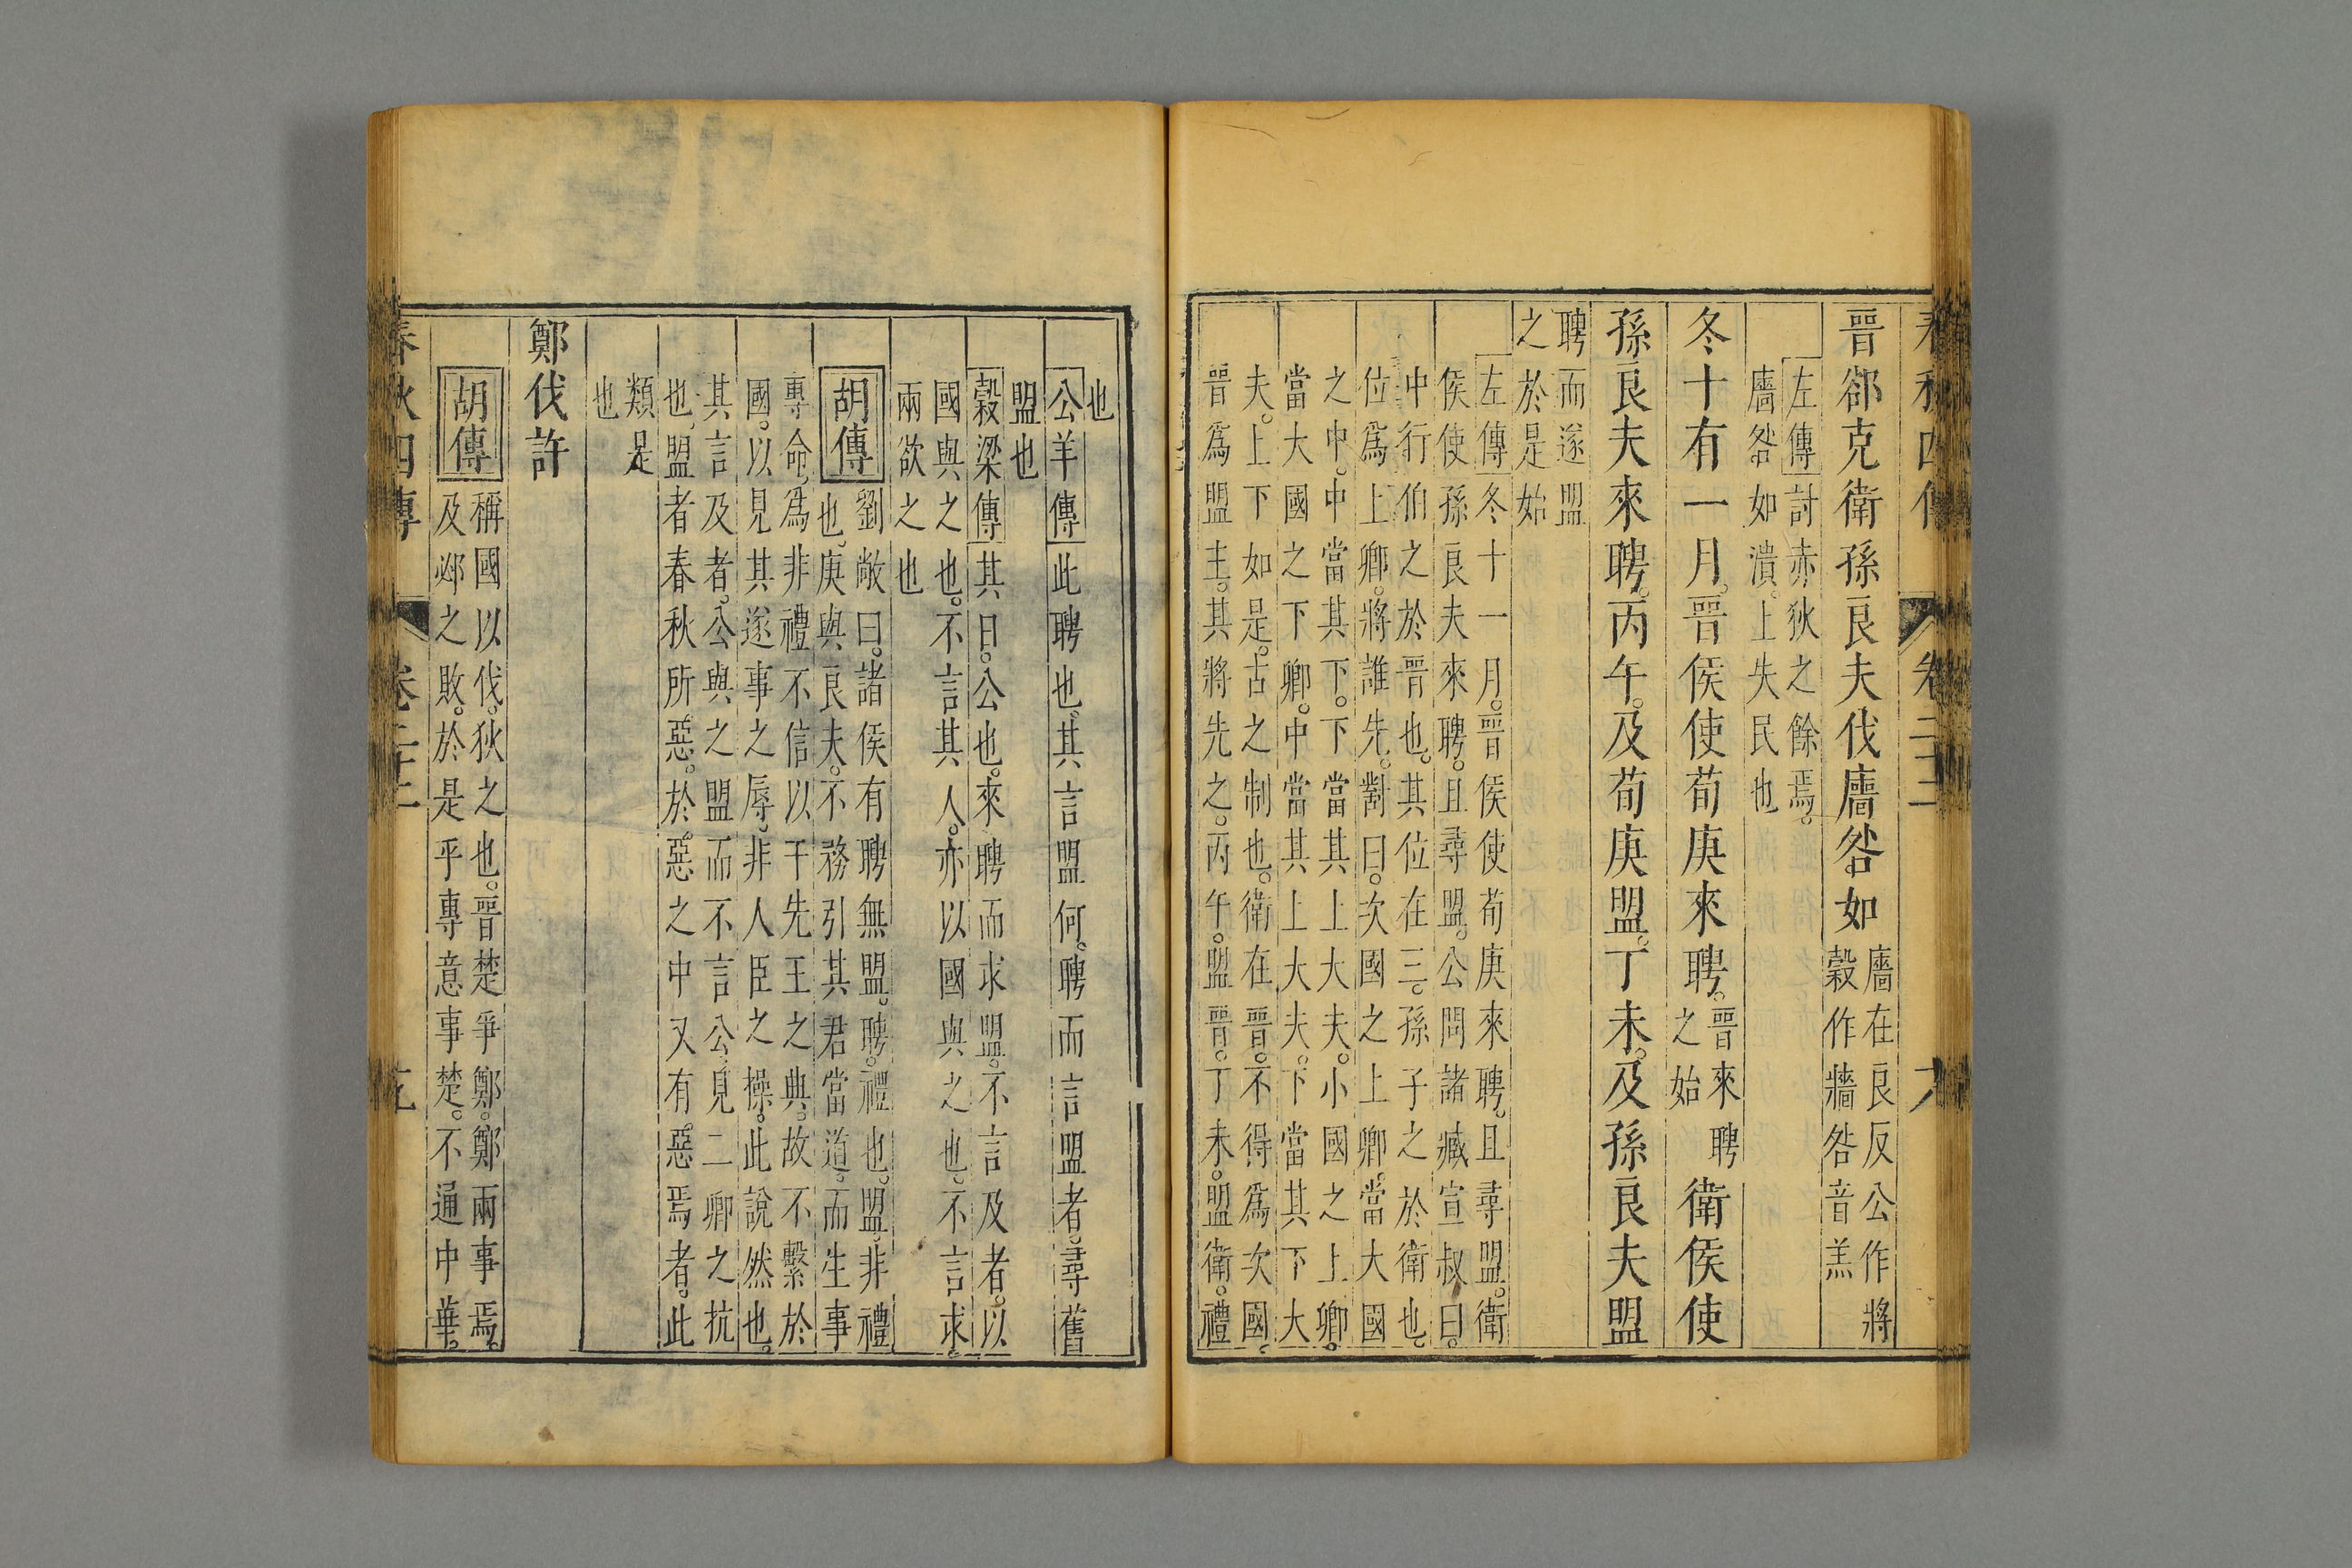 春秋四傳 卷二十二 九
晉郤克衛孫良夫伐廧咎如
廧在良反公作將
穀作牆咎音羔
左傳討赤狄之餘焉。
廧咎如潰。上失民也
冬十有一月。晉侯使荀庚來聘。
晉來聘
之始
衛侯使
孫良夫來聘。丙午。及荀庚盟。丁未。及孫良夫盟
聘而遂盟
之於是始
左傳冬十一月。晉侯使荀庚來聘。且尋盟。衛
侯使孫良夫來聘。且尋盟。公問諸臧宣叔曰。
中行伯之於晉也。其位在三。孫子之於衛也。
位爲上卿。將誰先。對曰。次國之上卿。當大國
之中。中當其下。下當其上大夫。小國之上卿。
當大國之下卿。中當其上大夫。下當其下大
夫。上下如是。古之制也。衛在晉。不得爲次國。
晉爲盟主。其將先之。丙午。盟晉。丁未。盟衛。禮
也
公羊傳此聘也。其言盟何。聘而言盟者。尋舊
盟也
穀梁傳其日。公也。來聘而求盟。不言及者。以
國與之也。不言其人。亦以國與之也。不言求。
兩欲之也
胡傳
劉敞曰。諸侯有聘無盟。聘。禮也。盟。非禮
也。庚與良夫。不務引其君當道。而生事
專命。爲非禮不信以干先王之典。故不繫於
國。以見其遂事之辱。非人臣之操。此說然也。
其言及者。公與之盟而不言公。見二卿之抗
也。盟者春秋所惡。於惡之中又有惡焉者。此
類是
也
鄭伐許
胡傳
稱國以伐。狄之也。晉楚爭鄭。鄭兩事焉。
及邲之敗。於是乎專意事楚。不通中華。
春秋四傳 卷二十二